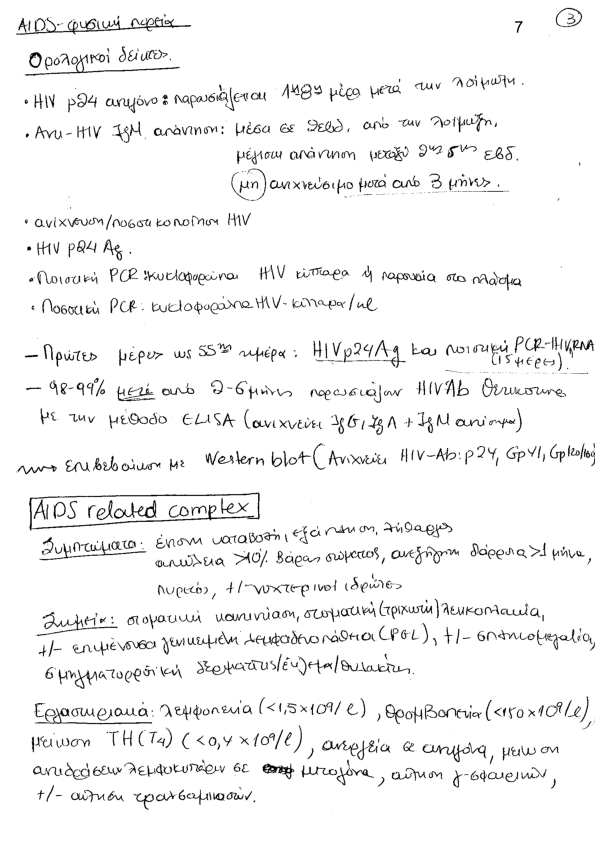 7 3
AIDS-φυσική πορεία
Ορολογικοί δείκτες.
• HIV p24 αντιγόνο: παρουσιάζεται μέρα μετά την λοίμωξη.
• Anti-HIV IgM απάντηση: μέσα σε εβδ. από την λοίμωξη,
μέγιστη απάντηση μεταξύ 2ης 5ης εβδ.
μη ανιχνεύσιμο μετά από 3 μήνες.
• ανίχνευση/ποσοτικοποίηση HIV
• HIV p24 Ag.
• Ποιοτική PCR: κυκλοφορούντα HIV κύτταρα ή παρουσία στο πλάσμα
• Ποσοτική PCR: κυκλοφορούντα HIV-κύτταρα/μl
– Πρώτες μέρες ως 55ης ημέρα: HIVp24Ag και ποιοτική PCR-HIV,RNA
(15 μέρες).
– 98-99% μετά από 2-6 μήνες παρουσιάζουν HIVAb
με την μέθοδο ELISA (ανιχνεύει IgG, IgA + IgM αντίσωμα)
επιβεβαίωση με Western blot (Ανιχνεύει HIV-Ab: p24, Gp41, Gp120/160
AIDS related complex
Συμπτώματα: έντονη καταβολή, εξάντληση, λήθαργος
απώλεια >10% βάρος σώματος, ανεξήγητη διάρροια >1 μήνα,
πυρετός, +/- νυχτερινοί ιδρώτες
Σημεία: στοματική καντιντίαση, στοματική (τριχωτή) λευκοπλακία,
+/- επιμένουσα γενικευμένη λεμφαδενοπάθεια (PGL), +/- σπληνομεγαλία,
σμηγματορροϊκή δερματίτις/έκζεμα/θυλακίτις.
Εργαστηριακά: λεμφοπενία (<1,5×10⁹/l), θρομβοπενία (<150×10⁹/l),
μείωση TH(T4) (<0,4×10⁹/l), ανεργεία σε αντιγόνα, μείωση
αντιδράσεων λεμφοκυττάρων σε μιτογόνα, αύξηση γ-σφαιρινών,
+/- αύξηση τρανσαμινασών.